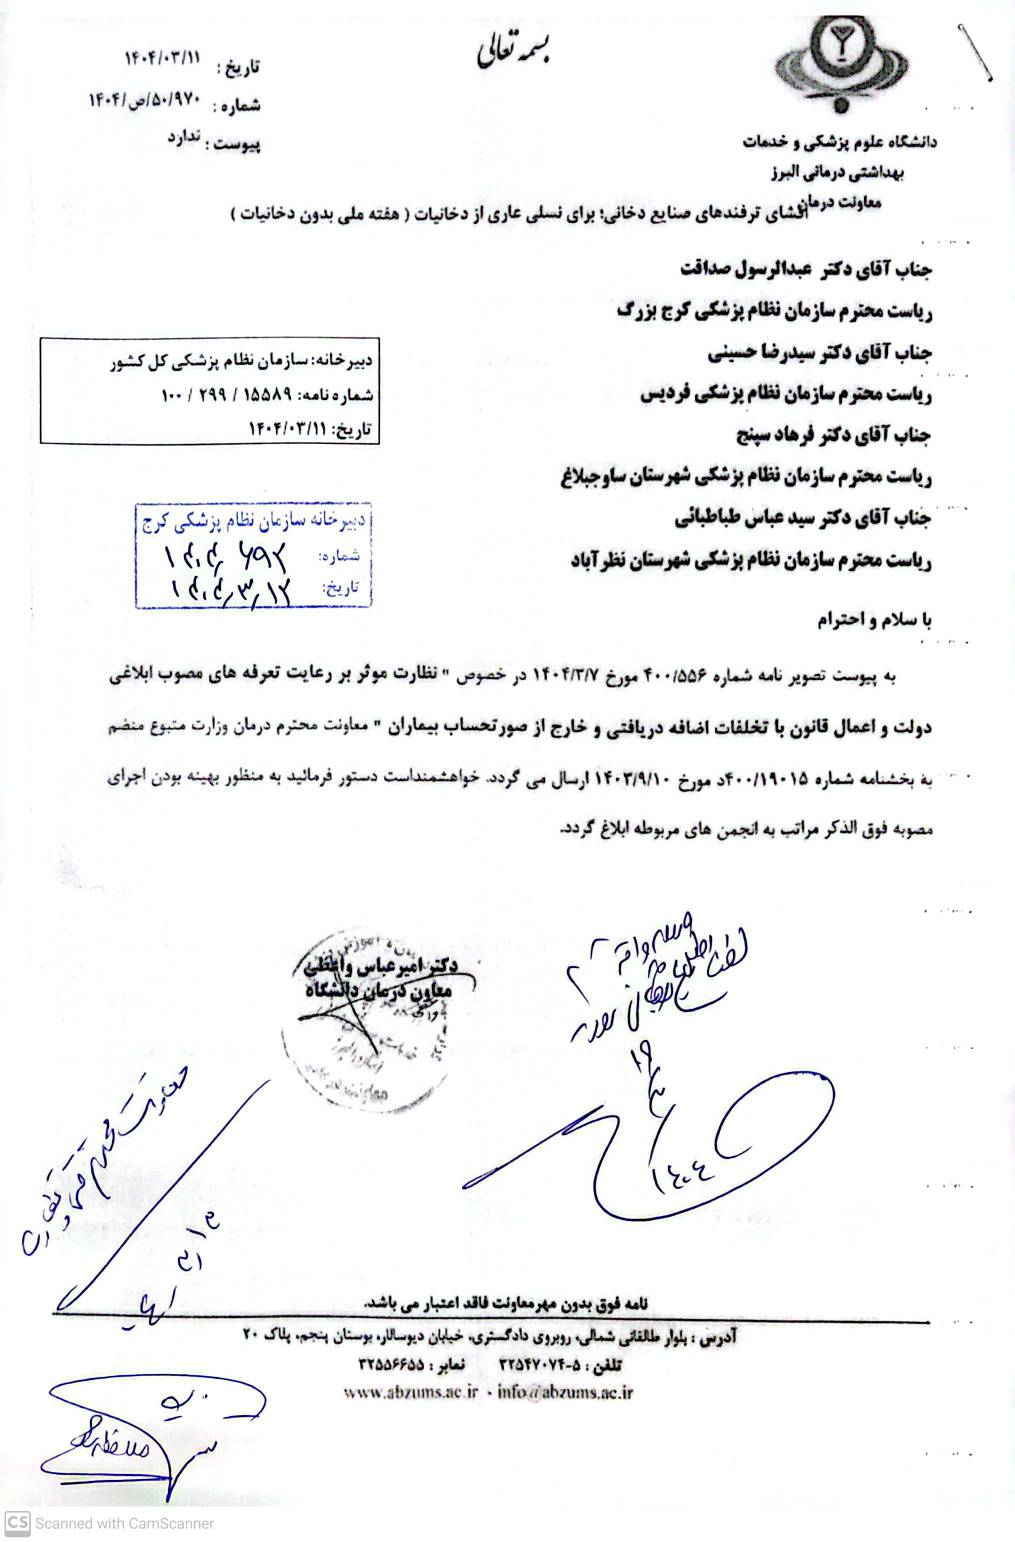 بسمه تعالی
تاریخ : ۱۴۰۴/۰۳/۱۱
شماره : ۱۴۰۴/ص/۵۰/۹۷۰
پیوست : ندارد
دانشگاه علوم پزشکی و خدمات
بهداشتی درمانی البرز
معاونت درمان
افشای ترفندهای صنایع دخانی؛ برای نسلی عاری از دخانیات ( هفته ملی بدون دخانیات )
جناب آقای دکتر عبدالرسول صداقت
ریاست محترم سازمان نظام پزشکی کرج بزرگ
جناب آقای دکتر سیدرضا حسینی
ریاست محترم سازمان نظام پزشکی فردیس
جناب آقای دکتر فرهاد سپنج
ریاست محترم سازمان نظام پزشکی شهرستان ساوجبلاغ
جناب آقای دکتر سید عباس طباطبائی
ریاست محترم سازمان نظام پزشکی شهرستان نظرآباد
دبیرخانه: سازمان نظام پزشکی کل کشور
شماره نامه: ۱۵۵۸۹ / ۲۹۹ / ۱۰۰
تاریخ: ۱۴۰۴/۰۳/۱۱
دبیرخانه سازمان نظام پزشکی کرج
شماره: ۱۴۰۴/۶۹۲
تاریخ: ۱۴۰۴/۳/۱۲
با سلام و احترام
به پیوست تصویر نامه شماره ۴۰۰/۵۵۶ مورخ ۱۴۰۴/۳/۷ در خصوص " نظارت موثر بر رعایت تعرفه های مصوب ابلاغی
دولت و اعمال قانون با تخلفات اضافه دریافتی و خارج از صورتحساب بیماران " معاونت محترم درمان وزارت متبوع منضم
به بخشنامه شماره ۴۰۰/۱۹۰۱۵د مورخ ۱۴۰۳/۹/۱۰ ارسال می گردد. خواهشمنداست دستور فرمائید به منظور بهینه بودن اجرای
مصوبه فوق الذکر مراتب به انجمن های مربوطه ابلاغ گردد.
دکتر امیرعباس واعظی
معاون درمان دانشگاه
۱۴۰۴
نامه فوق بدون مهرمعاونت فاقد اعتبار می باشد.
آدرس : بلوار طالقانی شمالی، روبروی دادگستری، خیابان دیوسالار، بوستان پنجم، پلاک ۲۰
تلفن : ۵-۳۲۵۴۷۰۷۴ نمابر : ۳۲۵۵۶۶۵۵
www.abzums.ac.ir - info@abzums.ac.ir
CS Scanned with CamScanner